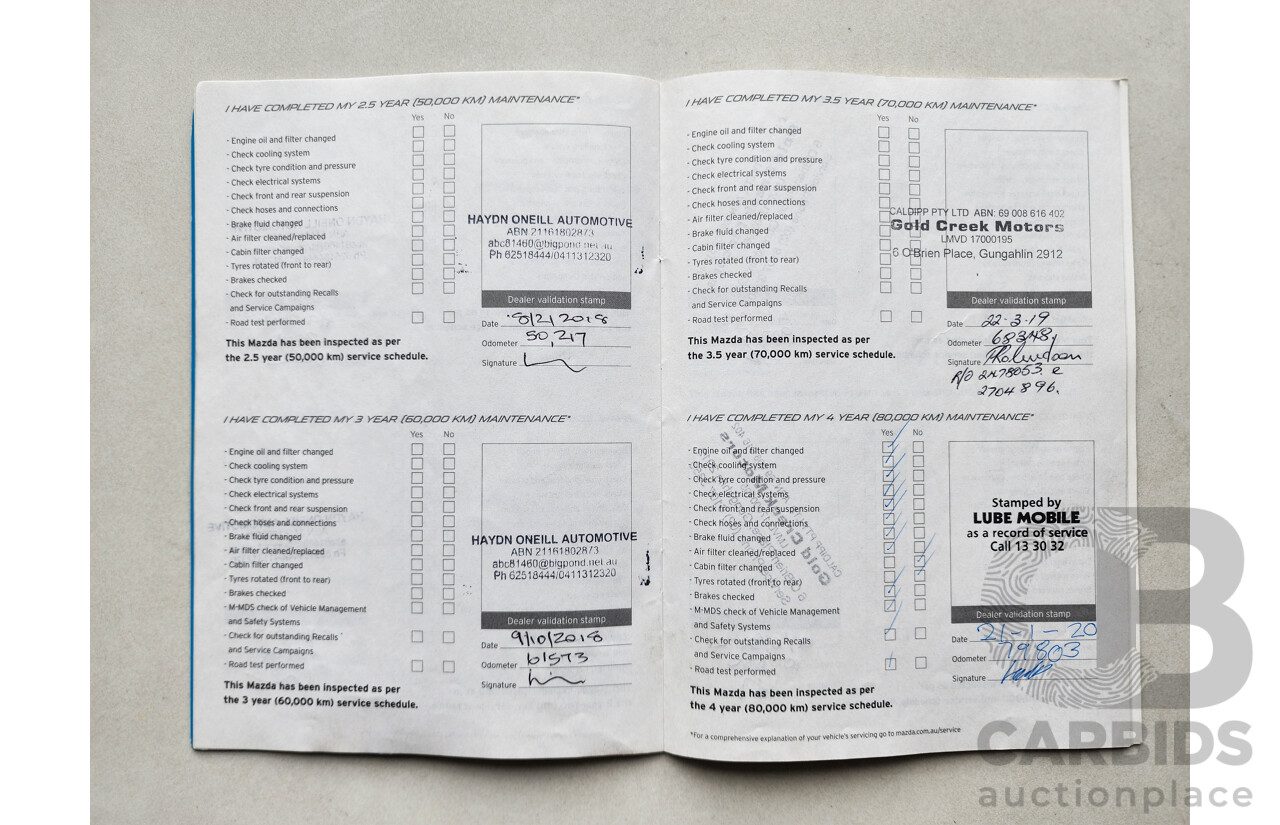 I HAVE COMPLETED MY 2.5 YEAR (50,000 KM) MAINTENANCE*
Yes No
- Engine oil and filter changed
- Check cooling system
- Check tyre condition and pressure
- Check electrical systems
- Check front and rear suspension
- Check hoses and connections
- Brake fluid changed
- Air filter cleaned/replaced
- Cabin filter changed
- Tyres rotated (front to rear)
- Brakes checked
- Check for outstanding Recalls
and Service Campaigns
- Road test performed
This Mazda has been inspected as per
the 2.5 year (50,000 km) service schedule.
HAYDN ONEILL AUTOMOTIVE
ABN 21161802873
abc81460@bigpond.net.au
Ph 62518444/0411312320
Dealer validation stamp
Date 8/2/2018
Odometer 50,217
Signature
I HAVE COMPLETED MY 3 YEAR (60,000 KM) MAINTENANCE*
Yes No
- Engine oil and filter changed
- Check cooling system
- Check tyre condition and pressure
- Check electrical systems
- Check front and rear suspension
- Check hoses and connections
- Brake fluid changed
- Air filter cleaned/replaced
- Cabin filter changed
- Tyres rotated (front to rear)
- Brakes checked
- M-MDS check of Vehicle Management
and Safety Systems
- Check for outstanding Recalls
and Service Campaigns
- Road test performed
This Mazda has been inspected as per
the 3 year (60,000 km) service schedule.
HAYDN ONEILL AUTOMOTIVE
ABN 21161802873
abc81460@bigpond.net.au
Ph 62518444/0411312320
Dealer validation stamp
Date 9/10/2018
Odometer 61573
Signature
I HAVE COMPLETED MY 3.5 YEAR (70,000 KM) MAINTENANCE*
Yes No
- Engine oil and filter changed
- Check cooling system
- Check tyre condition and pressure
- Check electrical systems
- Check front and rear suspension
- Check hoses and connections
- Air filter cleaned/replaced
- Brake fluid changed
- Cabin filter changed
- Tyres rotated (front to rear)
- Brakes checked
- Check for outstanding Recalls
and Service Campaigns
- Road test performed
This Mazda has been inspected as per
the 3.5 year (70,000 km) service schedule.
CALDIPP PTY LTD ABN: 69 008 616 402
Gold Creek Motors
LMVD 17000195
6 O'Brien Place, Gungahlin 2912
Dealer validation stamp
Date 22-3-19
Odometer 68348
Signature
2704896.
I HAVE COMPLETED MY 4 YEAR (80,000 KM) MAINTENANCE*
Yes No
- Engine oil and filter changed
- Check cooling system
- Check tyre condition and pressure
- Check electrical systems
- Check front and rear suspension
- Check hoses and connections
- Brake fluid changed
- Air filter cleaned/replaced
- Cabin filter changed
- Tyres rotated (front to rear)
- Brakes checked
- M-MDS check of Vehicle Management
and Safety Systems
- Check for outstanding Recalls
and Service Campaigns
- Road test performed
This Mazda has been inspected as per
the 4 year (80,000 km) service schedule.
Stamped by
LUBE MOBILE
as a record of service
Call 13 30 32
Dealer validation stamp
Date 21-1-20
Odometer 79803
Signature
*For a comprehensive explanation of your vehicle's servicing go to mazda.com.au/service
CARBIDS
auctionplace